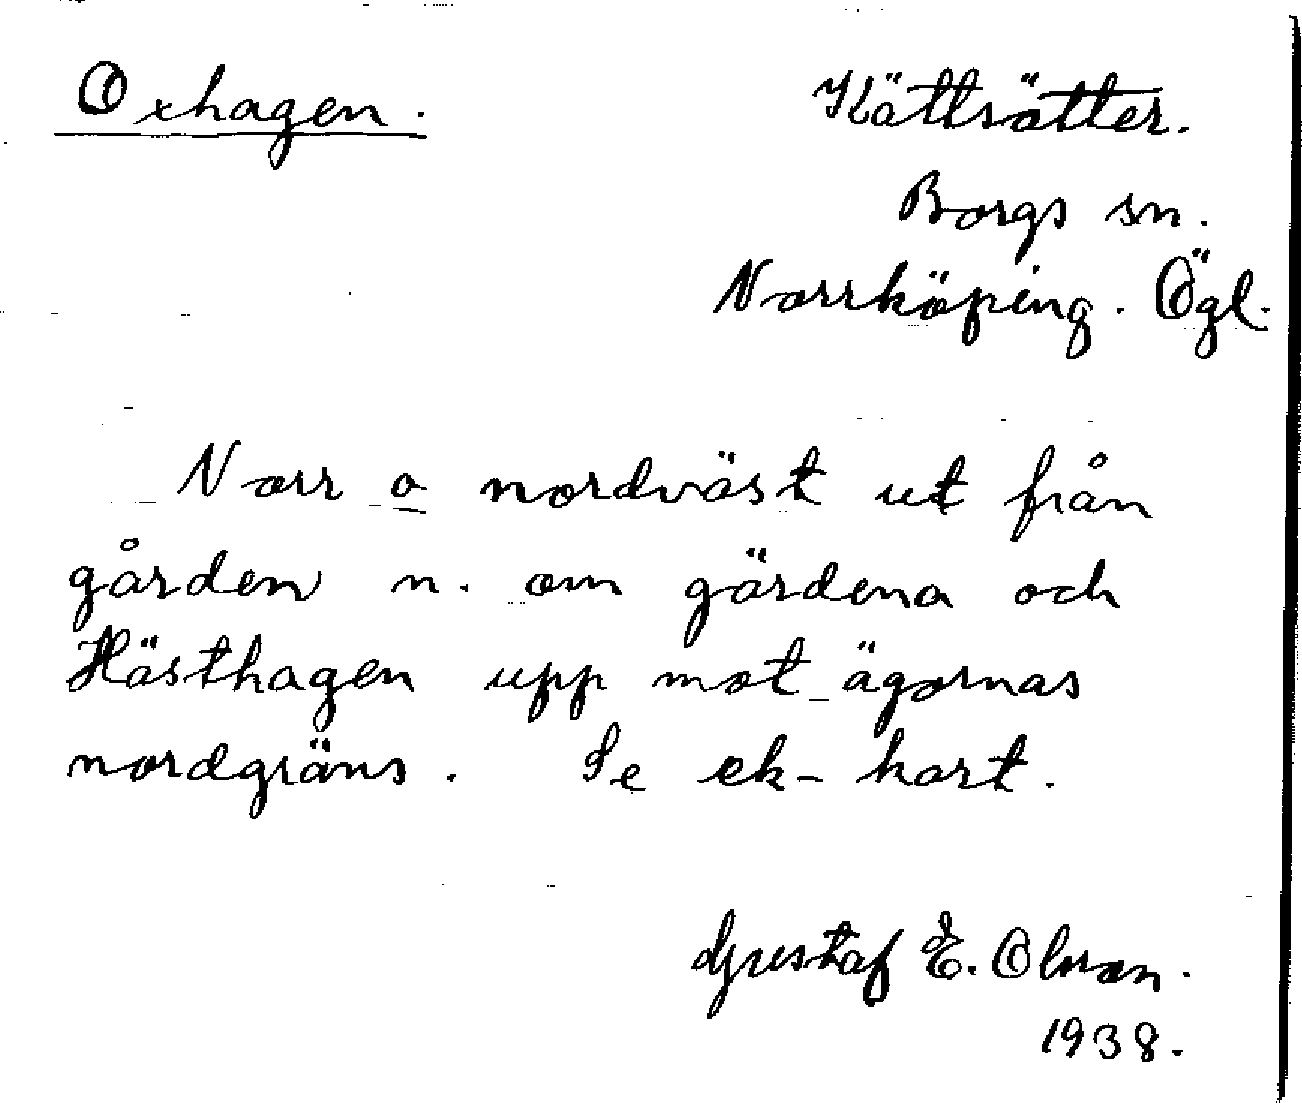 Oxhagen.
Kättsätter.
Borgs sn.
Norrköping. Ögl.
Norr o nordväst ut från
gården n. om gärdena och
Hästhagen upp mot ägornas
nordgräns. Se ek-kart.
Gustaf E. Olsson.
1938.